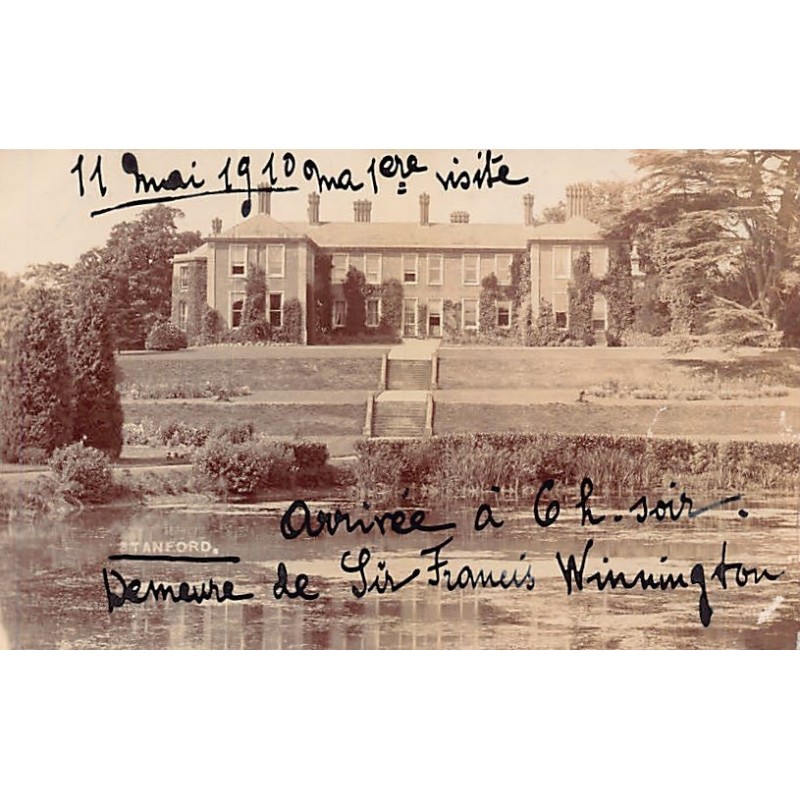 11 mai 1910 ma 1ere visite
Arrivée à 6 h. soir.
STANFORD.
Demeure de Sir Francis Winnington